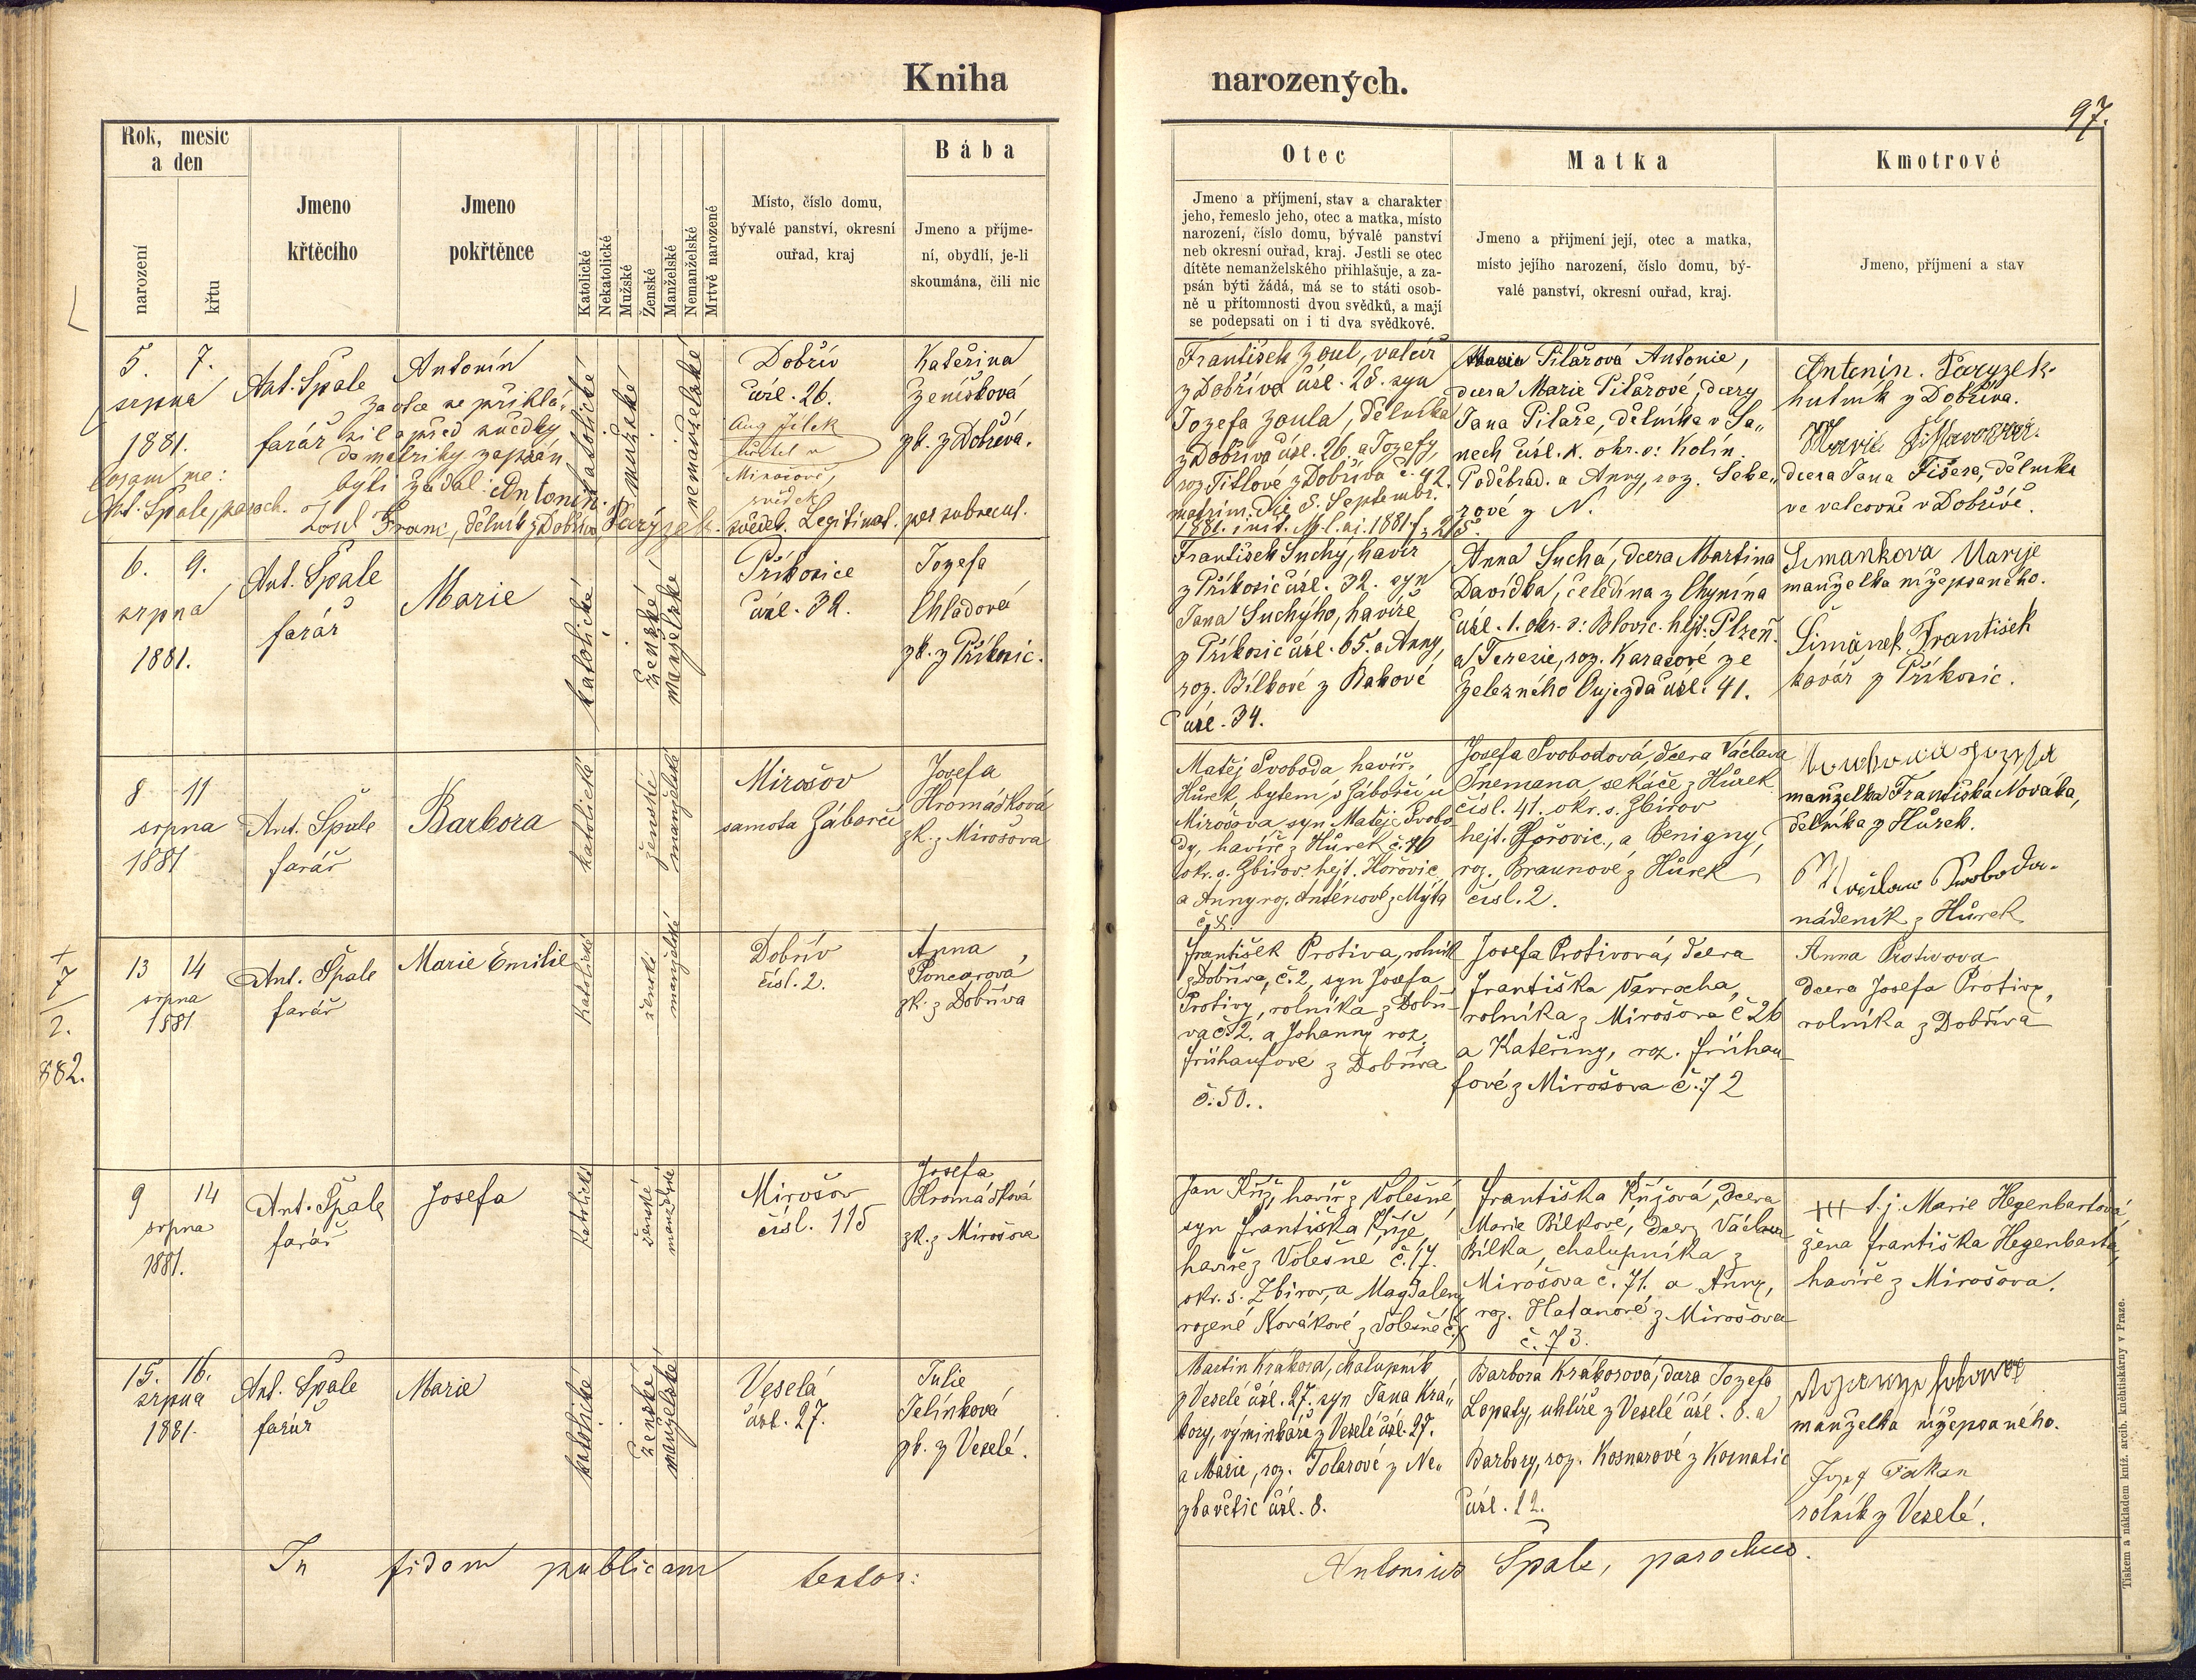 Kniha narozených.
97.
Rok, mesic
a den
narození
křtu
Jmeno
křtěcího
Jmeno
pokřtěnce
Katolické
Nekatolické
Mužské
Ženské
Manželské
Nemanželské
Mrtvě narozené
Místo, číslo domu,
bývalé panství, okresní
ouřad, kraj
Bába
Jmeno a příjme-
ní, obydlí, je-li
skoumána, čili nic
Otec
Jmeno a příjmení, stav a charakter
jeho, řemeslo jeho, otec a matka, místo
narození, číslo domu, bývalé panství
neb okresní ouřad, kraj. Jestli se otec
dítěte nemanželského přihlašuje, a za-
psán býti žádá, má se to státi osob-
ně u přítomnosti dvou svědků, a mají
se podepsati on i ti dva svědkové.
Matka
Jmeno a přijmení její, otec a matka,
místo jejího narození, číslo domu, bý-
valé panství, okresní ouřad, kraj.
Kmotrové
Jmeno, příjmení a stav
5. 7.
srpna
1881.
Coram me:
Ant. Spale, paroch.
Ant. Spale
farář
Antonín
za otce se přihlá„
sil a před svědky
do matriky zapsán
býti žádal: Antonín
Zoul Franc, dělník z Dobříva Paryzek
katolické
mužské
nemanželské
Dobřív
čísl. 26.
Aug Jílek
Mirošově,
svědek
svědek. Legitimat. per subsequ.
Kateřina
Zeníšková
zk. z Dobříva.
František Zoul, valcíř
z Dobříva čísl. 28. syn
Jozefa Zoula, dělníka
z Dobříva čísl. 26. a Jozefy,
roz. Titlové z Dobříva č. 42.
matrim. die 8. Septembr.
1881. init. M. l. aj. 1881. f. 215.
Pilařová Antonie,
dcera Marie Pilařové, dcery
Jana Pilaře, dělníka v Sa„
nech čísl. X. okr. s: Kolín.
Poděbrad. a Anny, roz. Sebe„
rové z N.
Antonín. Paryzek
hutník z Dobříva.
dcera Jana Fišera, dělníka
ve valcovně v Dobřívě.
6. 9.
srpna
1881.
Ant. Spale
farář
Marie
katolické
ženské
manželské
Příkosice
čísl. 32.
Jozefa
Chladová
zk. z Příkosic.
František Suchý, havíř
z Příkosic čísl. 32. syn
Jana Suchýho, havíře
z Příkosic čísl. 65. a Anny,
roz. Bílkové z Rakové
čísl. 34.
Anna Suchá, dcera Martina
Davídka, čeledína z Chynína
čísl. 1. okr. s: Blovic. hejt: Plzeň.
a Terezie, roz. Karasové ze
Železného Oujezda čísl. 41.
Simankova Marije
manželka nížepsaného.
Šimánek František
kovář z Příkosic.
8 11
srpna
1881
Ant. Špale
farář
Barbora
katolické
ženské
manželské
Mirošov
samota Záborčí
Josefa
Hromádková
zk. z Mirošova
Matěj Svoboda havíř z
Hůrek, bytem v Záborčí u
Mirošova syn Matěje Svobo
dy, havíře z Hůrek č. 46
okr. s. Zbirov. hejt. Hořovic
a Anny roz. Anténové z Mýta
č. 8.
Josefa Svobodová, dcera Václava
Tremana, sekáče z Hůrek
čísl. 41. okr. s. Zbirov
hejt. Hořovic, a Benigny,
roz. Braunové z Hůrek
čísl. 2.
manželka Františka Nováka,
dělníka z Hůrek.
Svoboda
nádeník z Hůrek
+
7
2.
882.
13 14
srpna
1881
Ant. Špale
farář
Marie Emilie
katolické
ženské
manželské
Dobřív
čísl. 2.
Anna
Poncarová
zk. z Dobříva
František Protiva, rolník
z Dobříva, č. 2, syn Josefa
Protivy, rolníka z Dobří-
va č. 2. a Johanny roz.
Frühaufove z Dobříva
č. 50..
Josefa Protivová, dcera
Františka Varrocha,
rolníka z Mirošova č 26
a Kateřiny, roz. Frühau-
fové z Mirošova č. 72
Anna Protivova
dcera Josefa Protivy,
rolníka z Dobříva
9 14
srpna
1881.
Ant. Špale
farář
Josefa
katolické
ženské
manželské
Mirošov
čísl. 115
Josefa
Hromádková
zk. z Mirošova
Jan Kříž, havíř z Volešné,
syn Františka Kříže,
havíře z Volešne č. 17.
okr. s. Zbirov, a Magdaleny
rozené Novákové z Volešné č.
Františka Křížová, dcera
Marie Bílkové, dcery Václava
Bílka, chalupníka z
Mirošova č. 71. a Anny,
roz. Hatanové z Mirošova
č. 73.
+++ t. j. Marie Hegenbartová
žena Františka Hegenbarta,
havíře z Mirošova.
15. 16.
srpna
1881.
Ant. Spale
farář
Marie
katolické
ženské
manželské
Veselá
čísl. 27.
Julie
Jelínková
zk. z Veselé.
Martin Krákora, chalupník
z Veselé čísl. 27. syn Jana Krá„
kory, výminkáře z Veselé čísl. 27.
a Marie, roz. Tolarové z Ne„
zbavětic čísl. 8.
Barbora Krákorová, dcera Jozefa
Lopaty, uhlíře z Veselé čísl. 8. a
Barbory, roz. Kosnarové z Kornatic
čísl. 12.
manželka nížepsaného.
Jozef Fakan
rolník z Veselé.
In fidem publicam testor:
Antonius Spale, parochus.
Tiskem a nákladem kníž. arcib. kněhtiskárny v Praze.